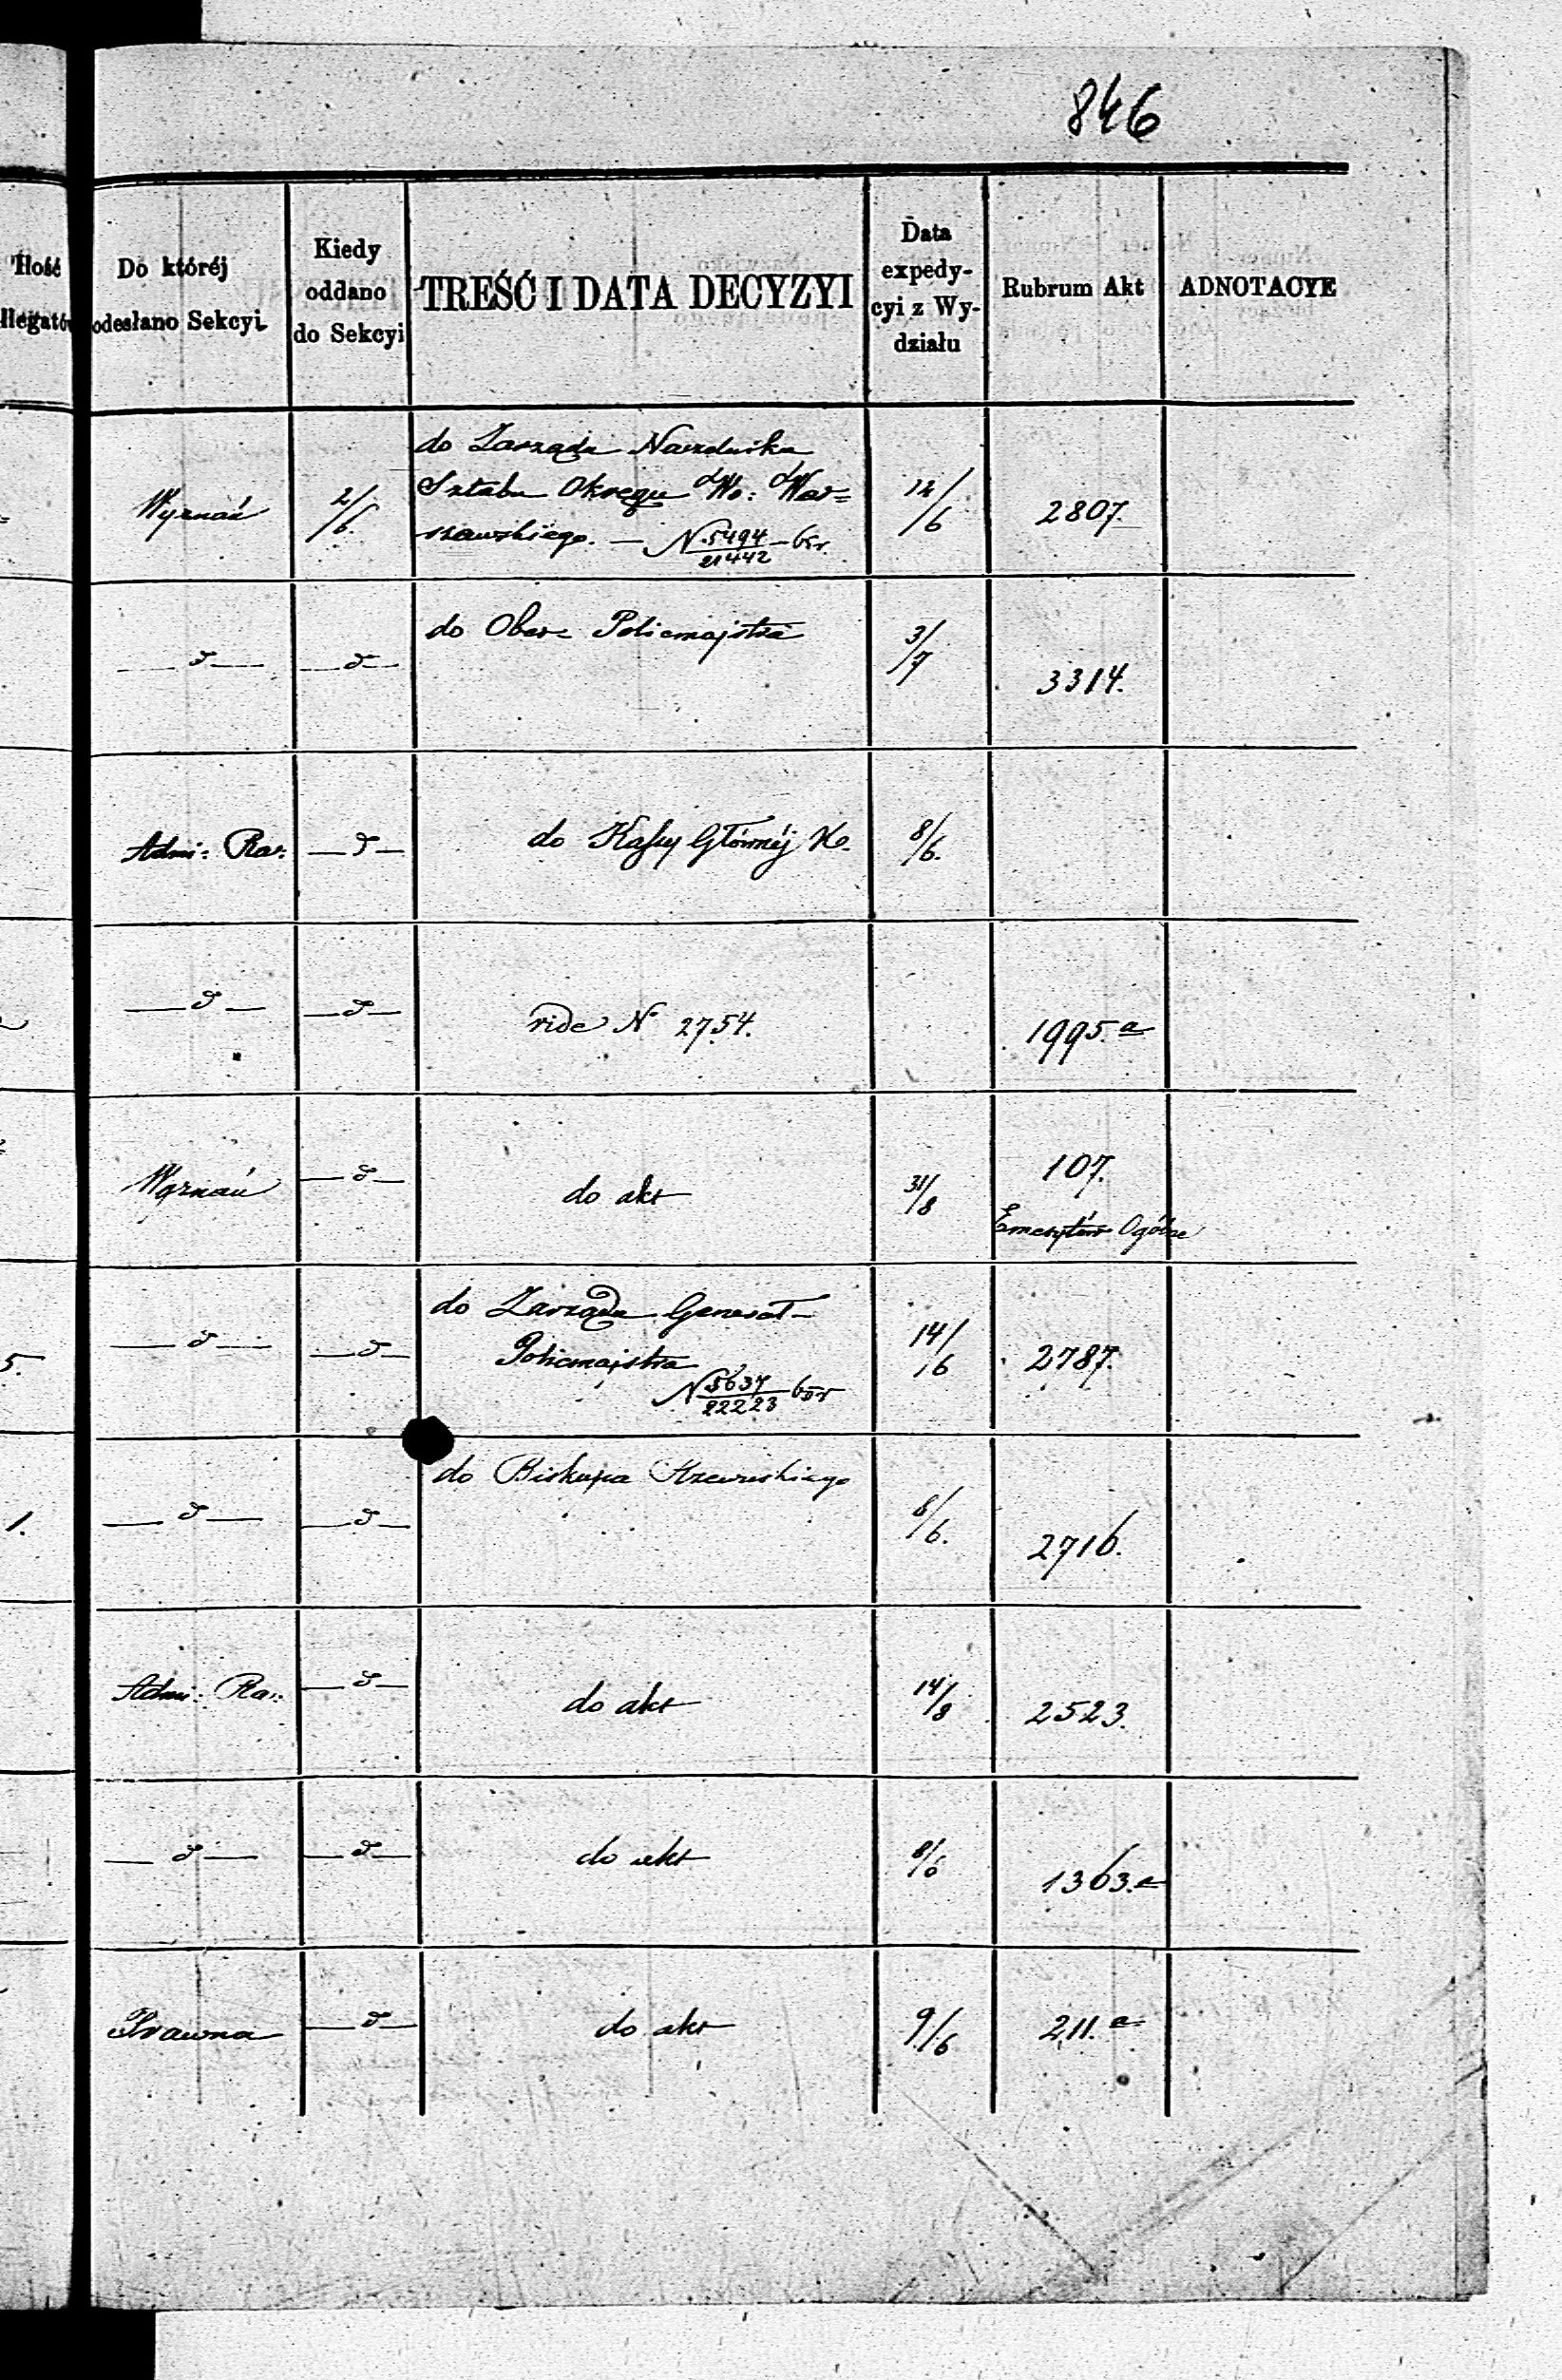 846
Ilość
llegatów
Do któréj
odesłano Sekcyi
Kiedy
oddano
do Sekcyi
TREŚĆ I DATA DECYZYI
Data
expedy-
cyi z Wy-
działu
Rubrum Akt
ADNOTACYE
Wyznań
2/6.
do Zarządu Naczelnika
Sztabu Okręgu Wo: War=
szawskiego. — N 5494/21442 —
12/6
2807.
—d—
—d—
do Ober= Policmajstra
3/7
3314.
Admi: Ra:
—d—
do Kassy Głównéj Ko.
8/6.
—d—
—d—
vide N 2754.
1995.a
Wyznań
—d—
do akt
31/8
107.
Emerytów Ogólne
—d—
—d—
do Zarządu Generał-
Policmajstra
N 5637/22223
14/6
2787.
5.
—d—
—d—
do Biskupa
8/6.
2716.
1.
Admi: Ra:
—d—
do akt
14/8
2523.
—d—
—d—
do akt
8/6
1363.a
Prawna
—d—
do akt
9/6
211.a